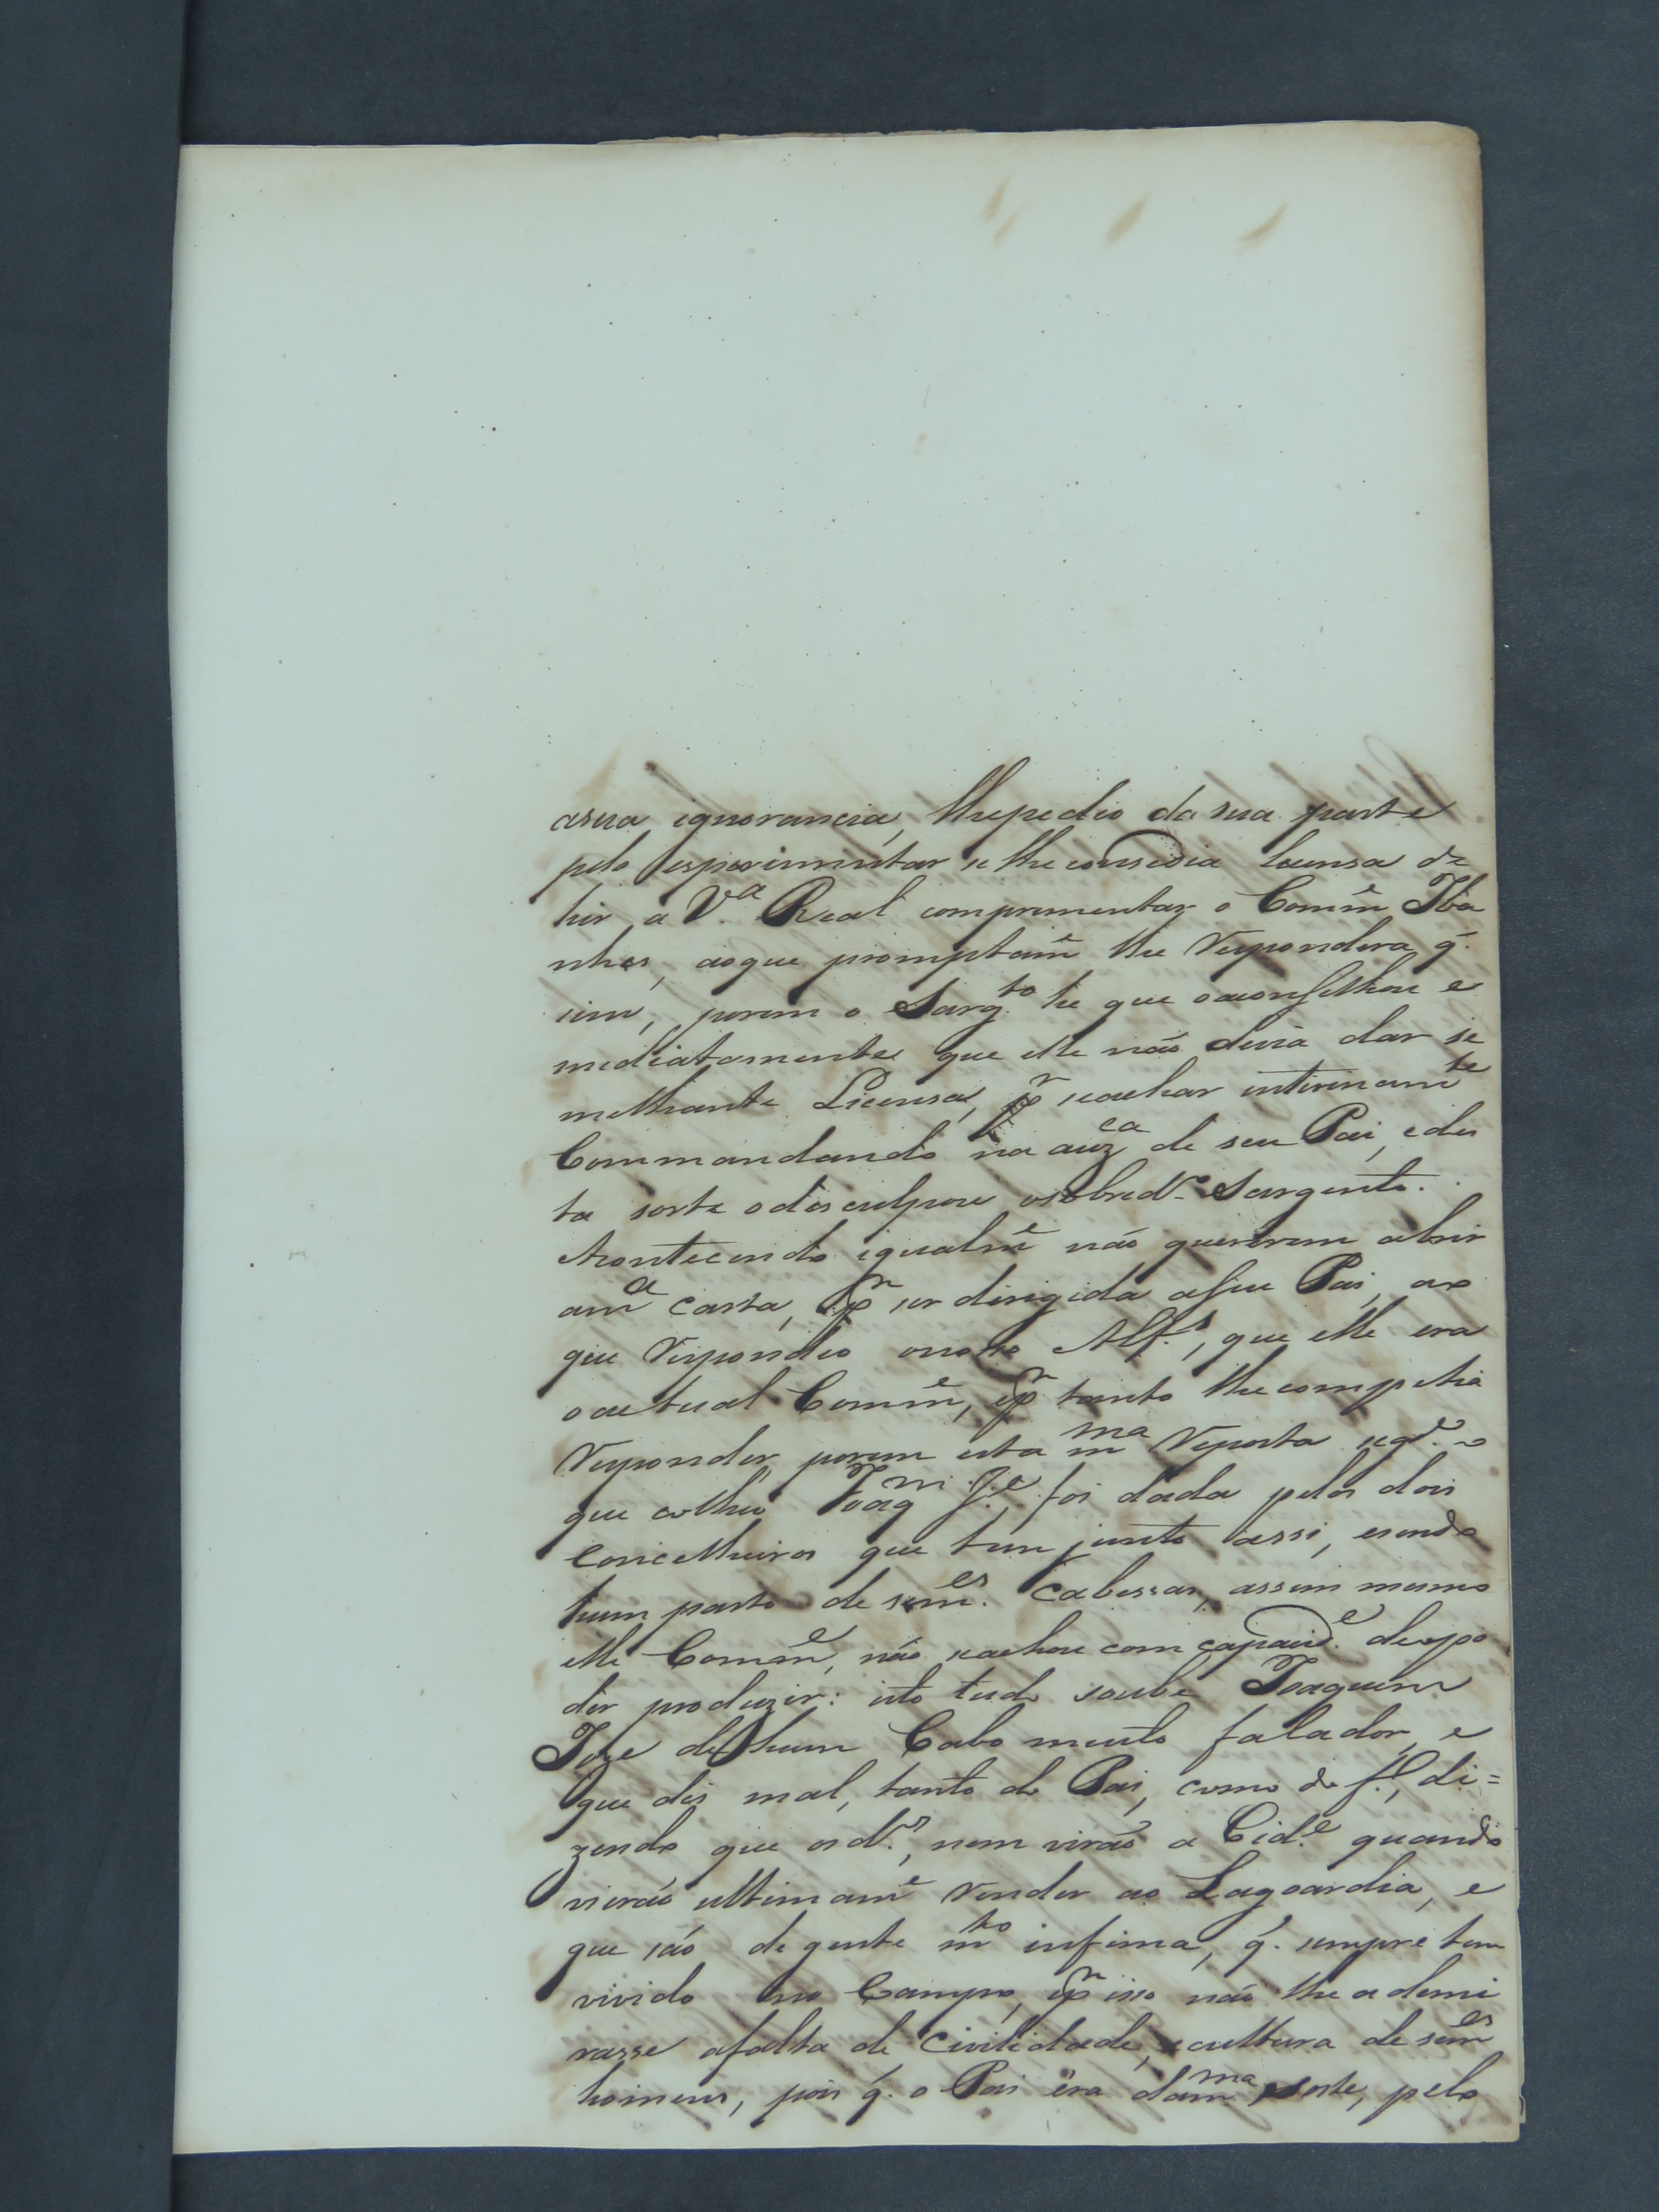 asua ignorancia, lhepedio da sua parte
pelo esperimentar se lhe consedia Lecensa de
hir a V.ª Real comprementar o Comm.e Iba
nhes, aoque promptam.e lhe Respondera q̃.
sim, porem o Sarg.to he que oaconselhou e
mediatamente que elle não devia dar se
melhante Licensa, p.r seachar interinam.te
Commandando na auz.ca de seu Pai, edes
ta sorte odesculpou osobred.o Sargento.
Acontecendo igualm.e não quererem abrir
am.a carta, p.r ser dirigida aseu Pai, ao
que Respondeo onosso Alf.s, que elle era
oactual Comm.e, ep.r tanto lhecompetia
Responder, porem esta m.ma Reposta seg.do o
que colheo Joaq.m J.e, foi dada pelos dois
Concelheiros que tem junto assi, esendo
hum parto de sem.es Cabessas, assim mesmo
elle Comm.e, não seachou com capacid.e deopo
der produzir: isto tudo soube Joaquim
Joze dehum Cabo muito falador, e
que dis mal, tanto do Pai, como do f.o, di=
zendo que osd.os, nem virão a Cid.e quando
vierão ultimam.e Render ao Lagoardia, e
que são de gente m.to infima, q̃. sempre tem
vivido no Campo, ep.r isso não lhe ademi
rasse afalta de Civilidade, ecultura de sem.es
homens, pois q̃. o Pai era dam.ma sorte, pelo